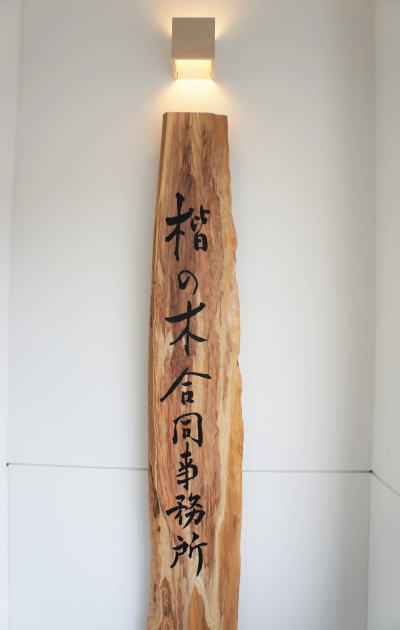 楷の木合同事務所